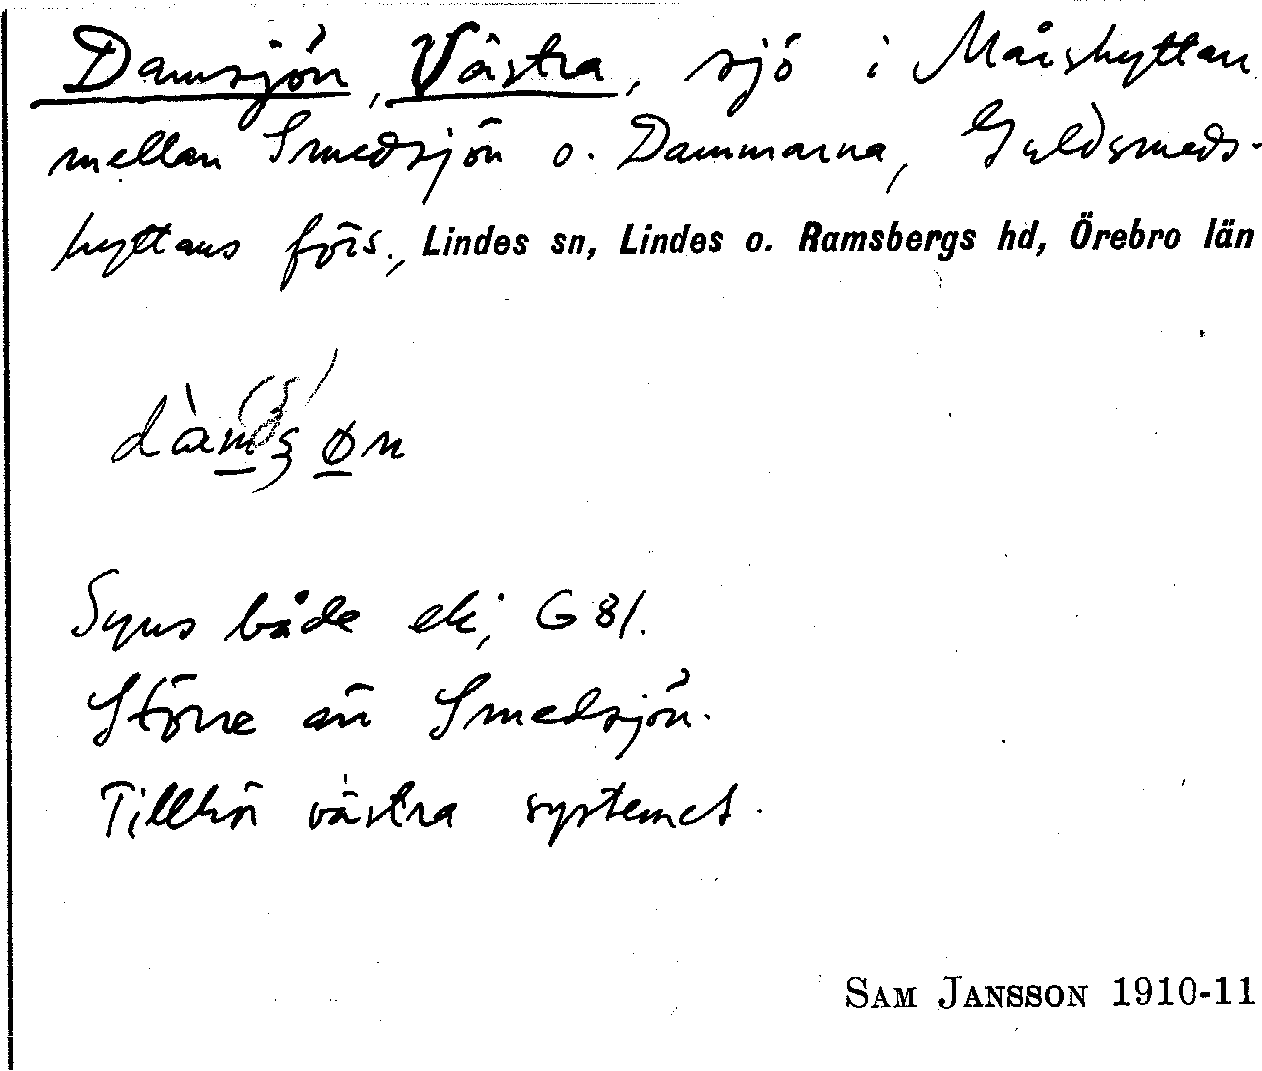 Damsjön, Västra, sjö i Mårshyttan
mellan Smedsjön o. Dammarna, Guldsmeds-
hyttans förs., Lindes sn, Lindes o. Ramsbergs hd, Örebro län
Syns både ek; G 81.
Större än Smedsjön.
Tillhör västra systemet.
SAM JANSSON 1910-11